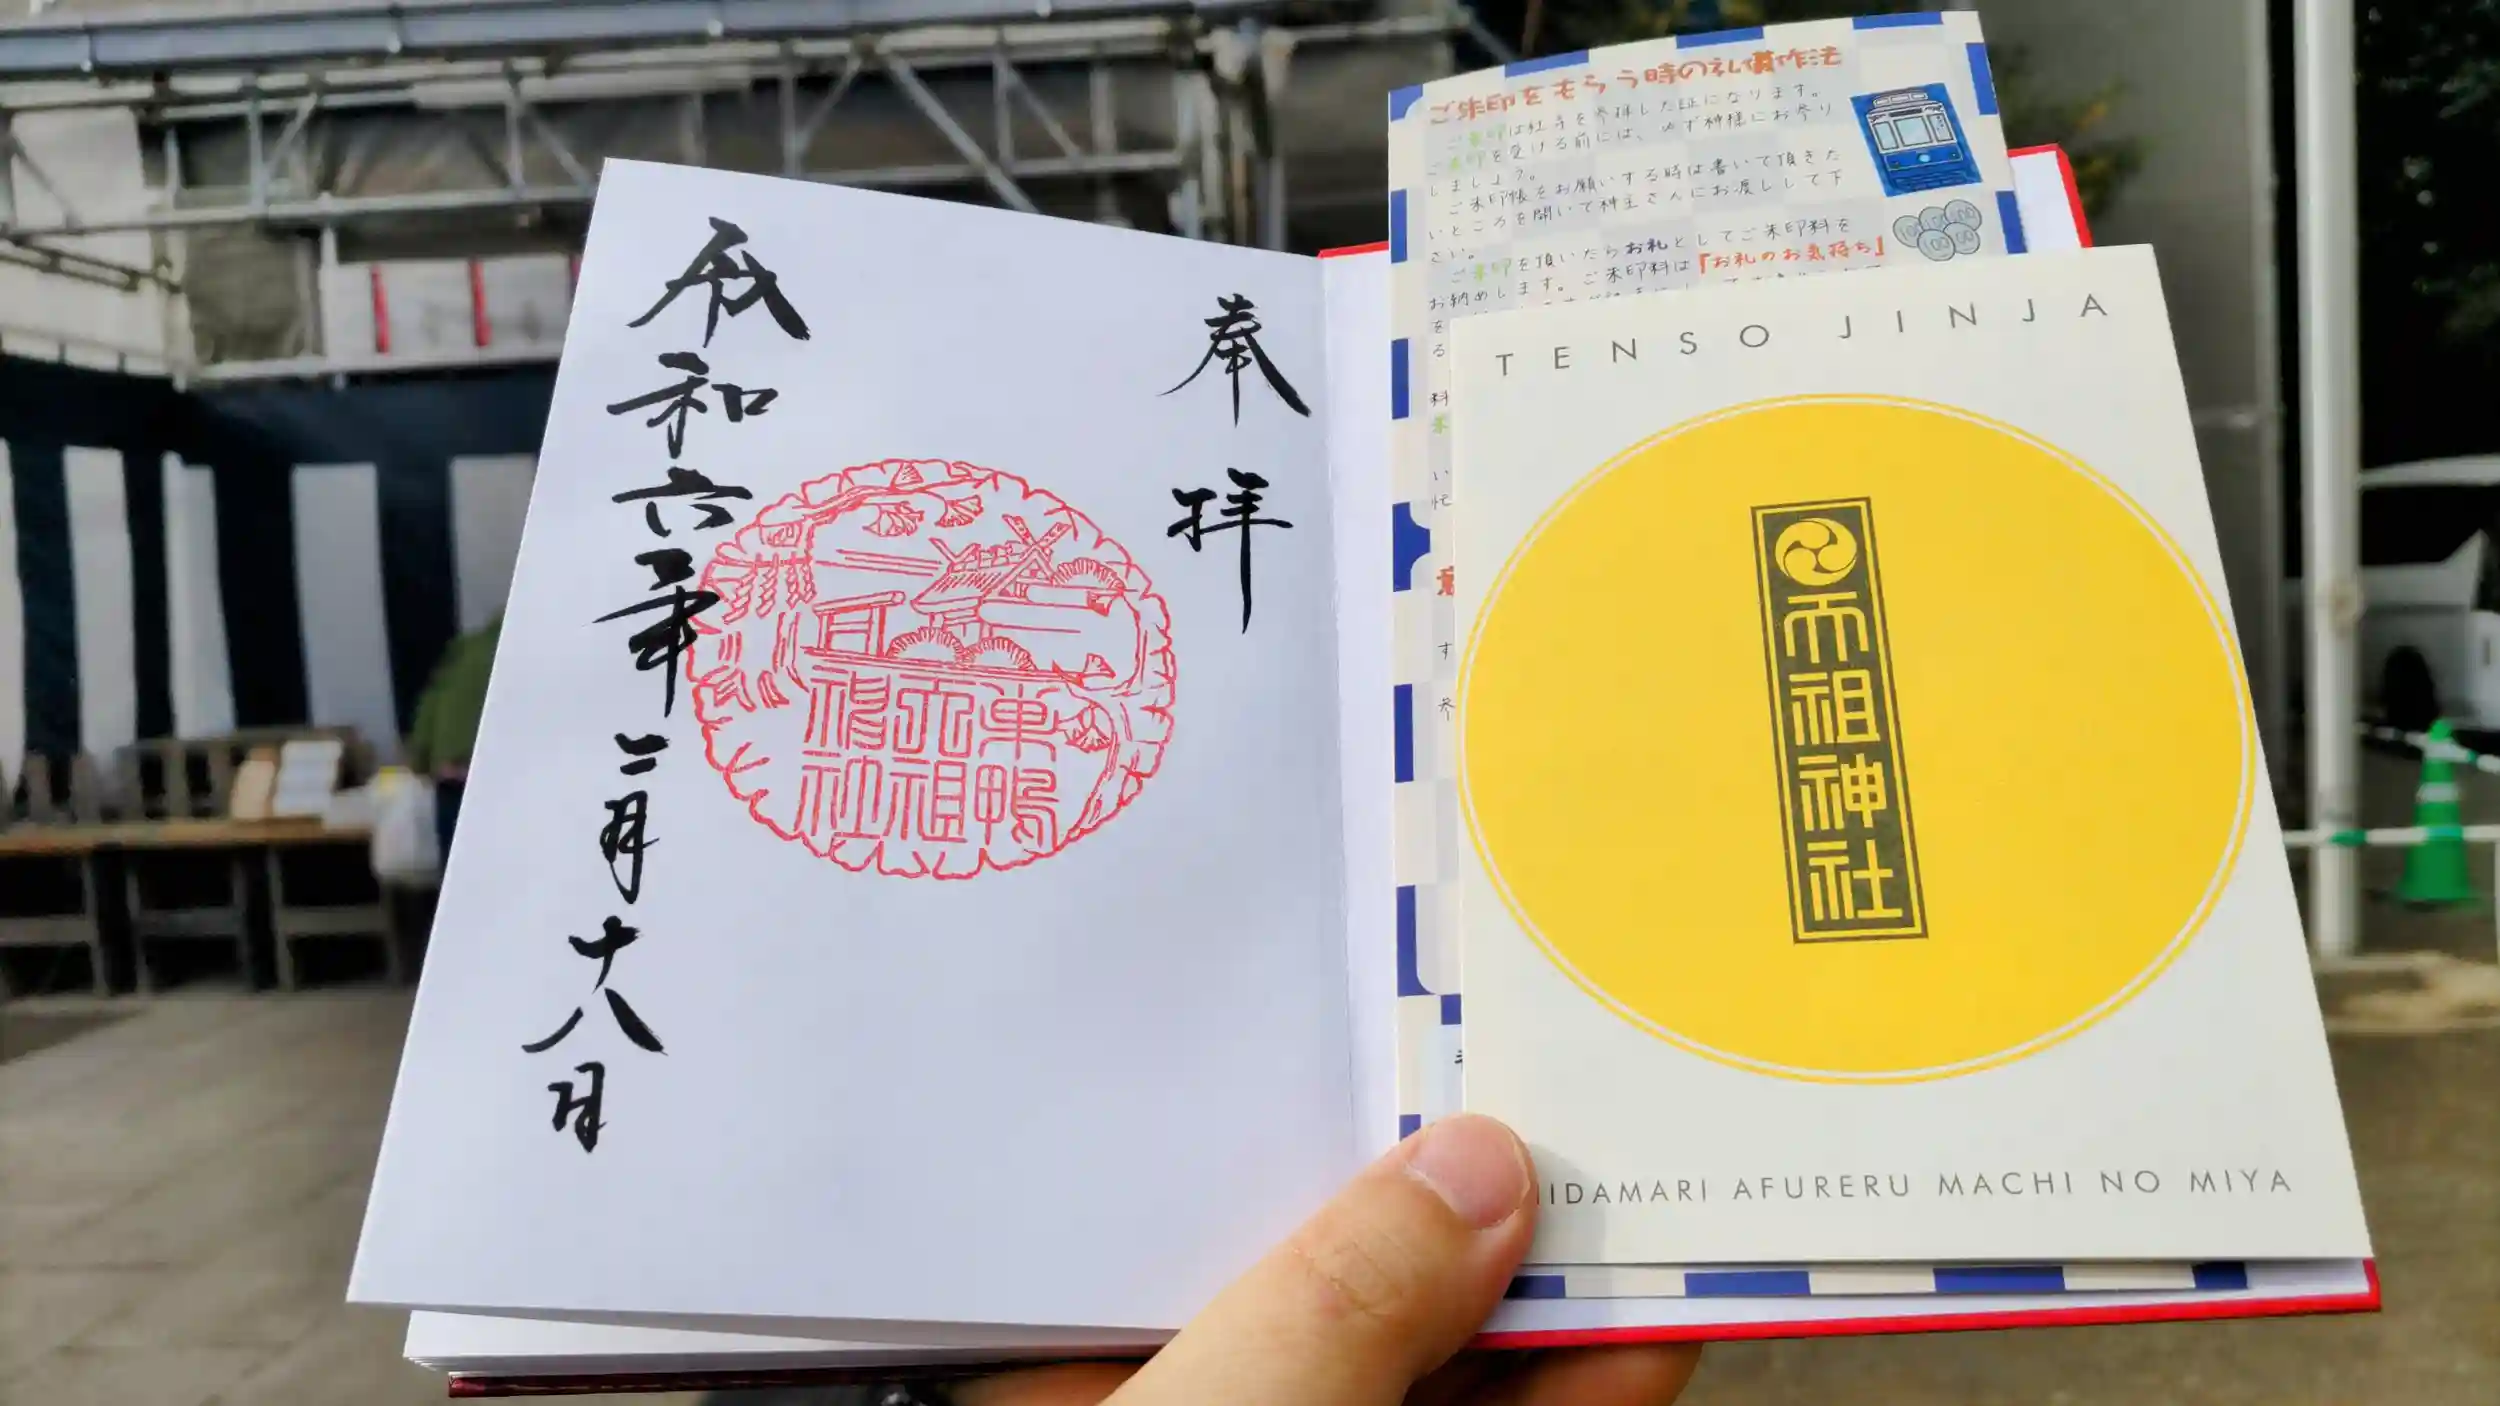 奉拝
令和六年二月十八日
巣鴨
天祖
神社
ご朱印をもらう時の礼儀作法
ご朱印は社寺を参拝した証になります。
ご朱印を受ける前には、必ず神様にお参り
しましょう。
ご朱印帳をお願いする時は書いて頂きた
いところを開いて神主さんにお渡しして下
さい。
ご朱印を頂いたらお礼としてご朱印料を
お納めします。ご朱印料は『お礼のお気持ち』
を
る
料
い
忙
す
参
TENSO JINJA
天祖神社
IIDAMARI AFURERU MACHI NO MIYA